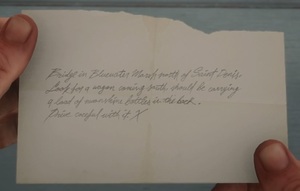 Bridge in Bluewater Marsh north of Saint Denis.
Look for a wagon coming south should be carrying
a load of moonshine bottles in the back.
Drive careful with it X